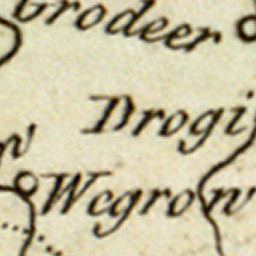 Grodeer
Drogi
Wegrow